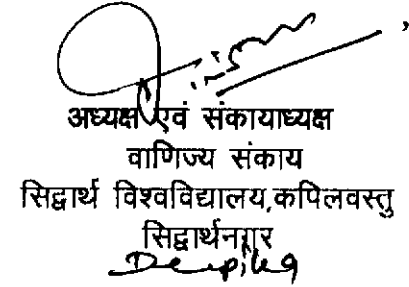 अध्यक्ष एवं संकायाध्यक्ष
वाणिज्य संकाय
सिद्वार्थ विश्वविद्यालय,कपिलवस्तु
सिद्वार्थनगर